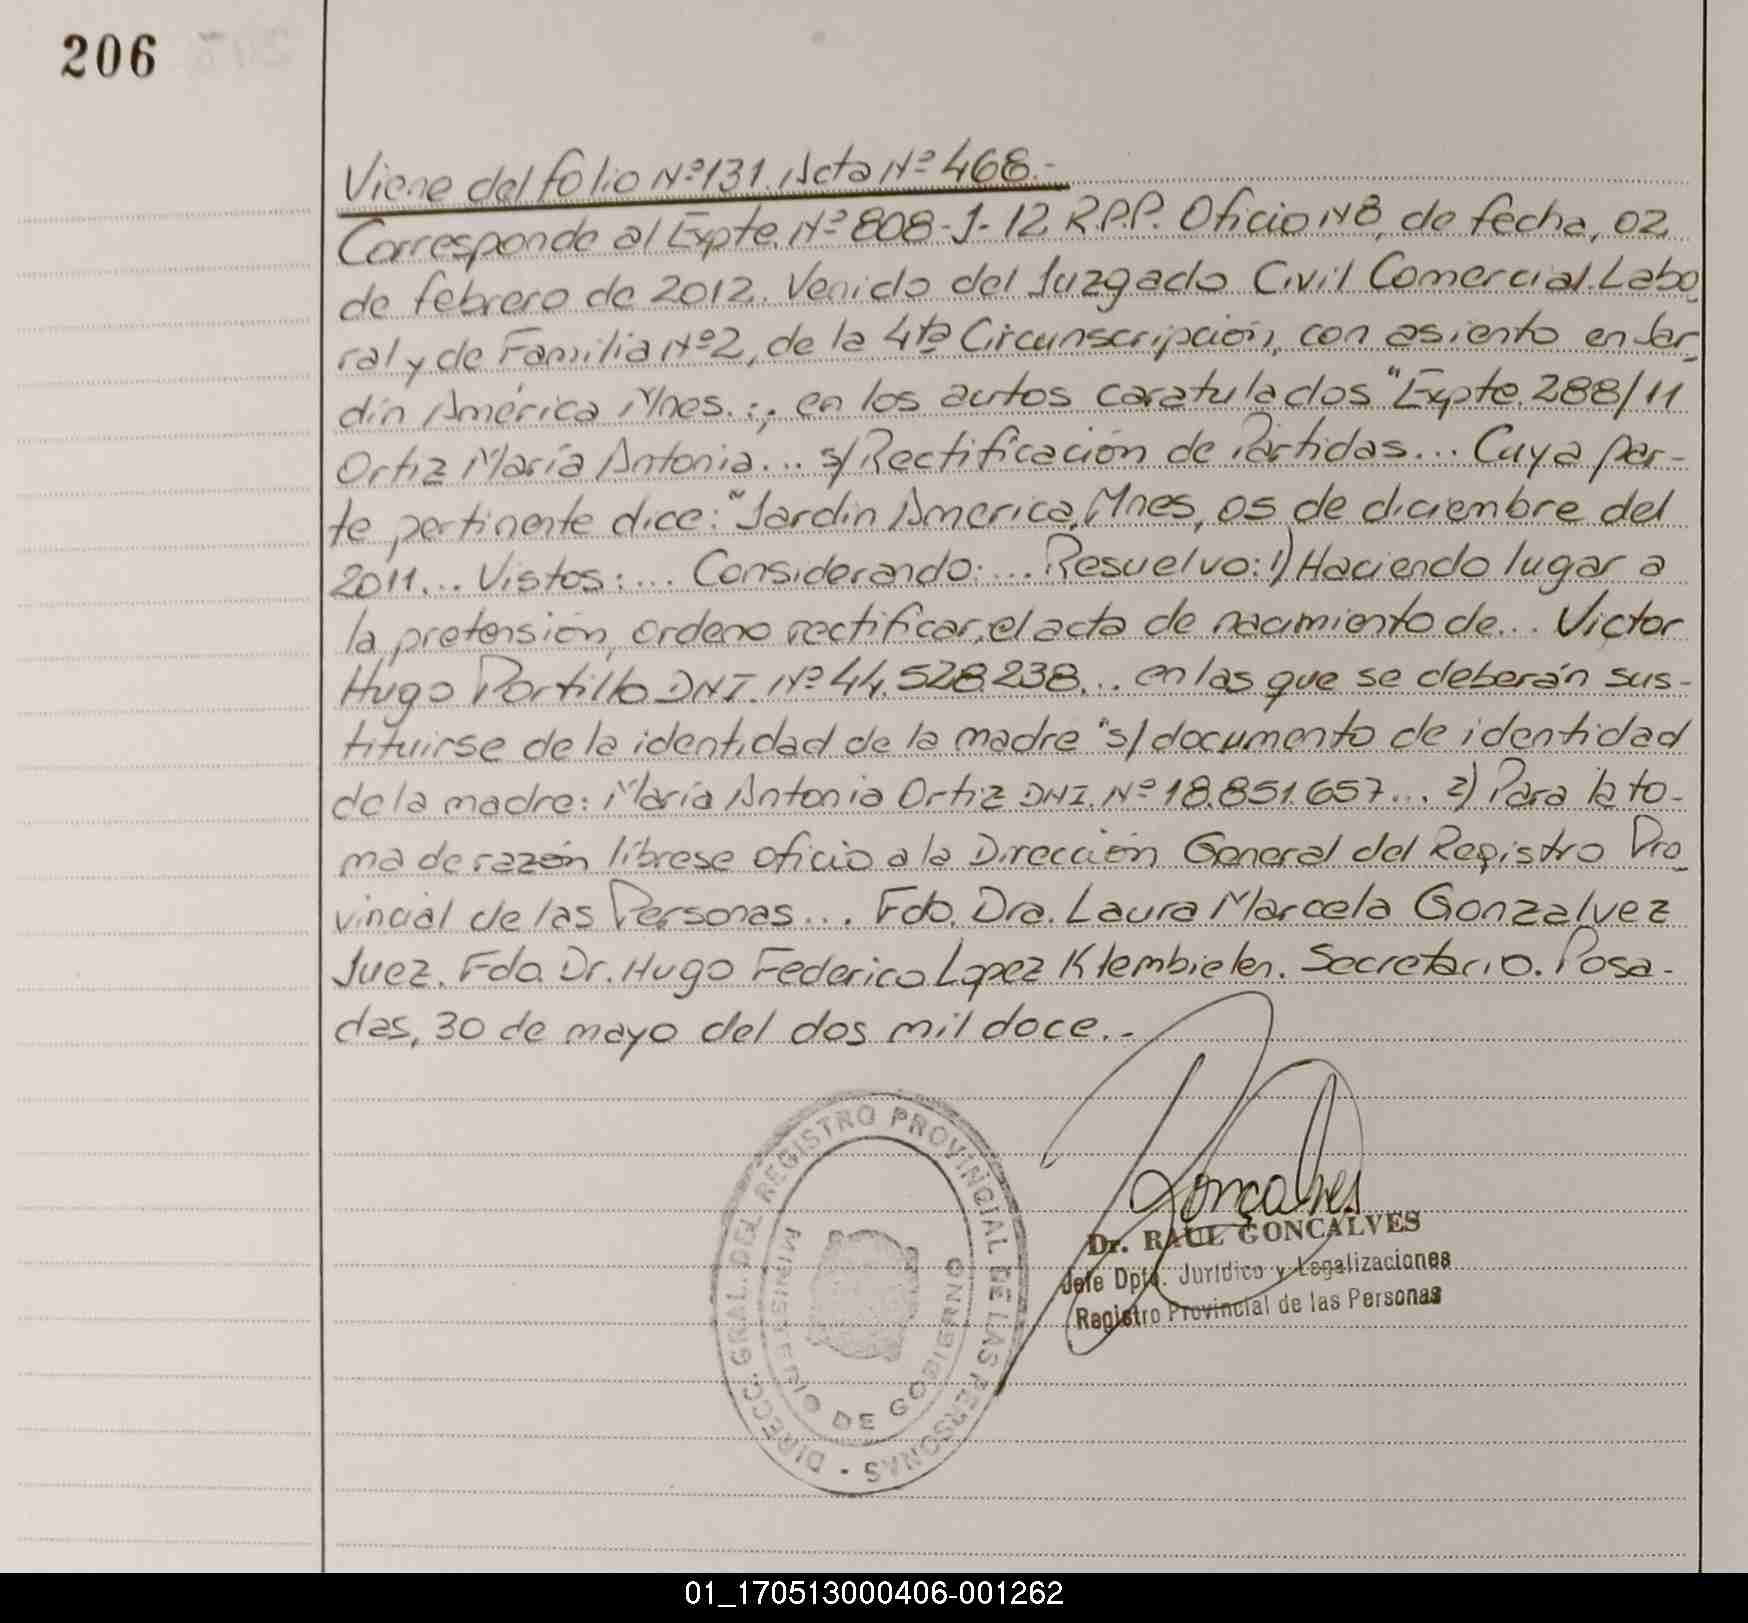 206
Viene del folio Nº 131. Acta Nº 468.-
Corresponde al Expte. Nº 808-J-12 R.P.P. Oficio N8, de fecha, 02
de febrero de 2012. Venido del Juzgado Civil Comercial. Labo
ral y de Familia Nº 2, de la 4ta Circunscripción, con asiento en Jar
din América Mnes.:, en los autos caratulados "Expte. 288/11
Ortiz María Antonia... s/Rectificación de Partidas... Cuya par-
te pertinente dice: "Jardin America, Mnes, 05 de diciembre del
2011... Vistos:... Considerando:... Resuelvo: 1) Haciendo lugar a
la pretensión, ordeno rectificar, el acta de nacimiento de... Victor
Hugo Portillo DNI. Nº 44.528.238... en las que se deberán sus-
tituirse de la identidad de la madre "s/documento de identidad
de la madre: María Antonia Ortiz DNI. Nº 18.851.657... 2) Para la to-
ma de razón líbrese oficio a la Dirección General del Registro Pro
vincial de las Personas... Fdo. Dra. Laura Marcela Gonzalvez
Juez. Fdo. Dr. Hugo Federico Lopez Klembielen. Secretario. Posa-
das, 30 de mayo del dos mil doce.-
DIRECC. GRAL. DEL REGISTRO PROVINCIAL DE LAS PERSONAS
MINISTERIO DE GOBIERNO
Gonçalves
Dr. RAUL GONCALVES
Jefe Dpto. Jurídico y Legalizaciones
Registro Provincial de las Personas
01_170513000406-001262